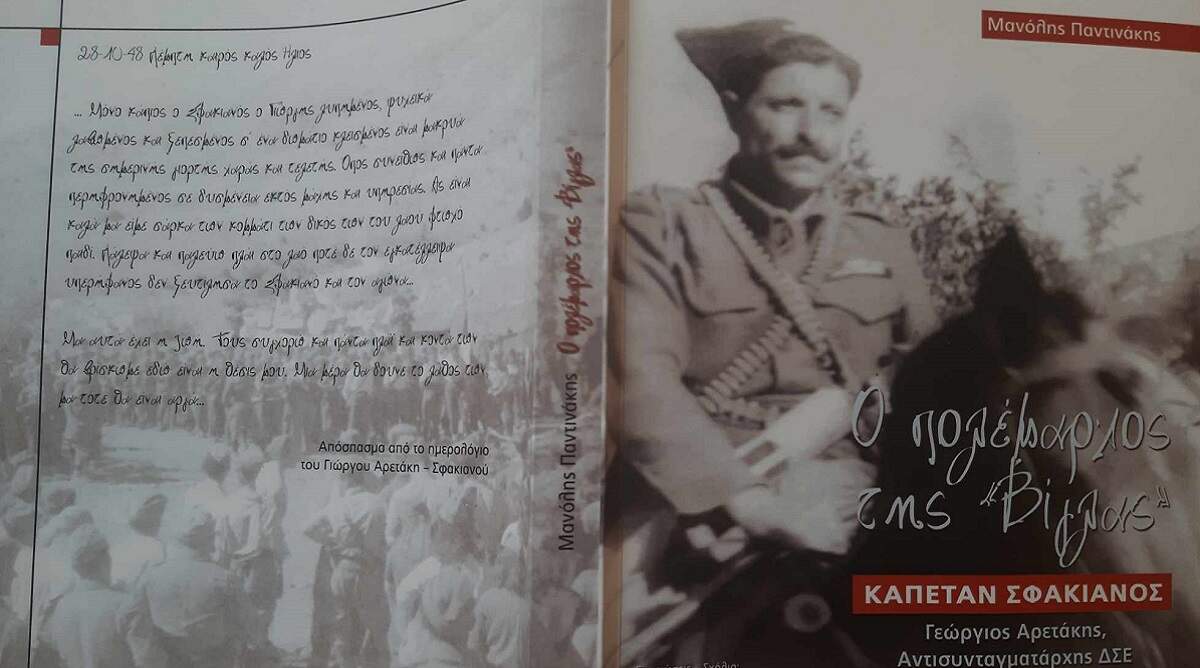 28-10-48 Πέμπτη καιρός καλός Ηλιος
... Μόνο κάπιος ο Σφακιανός ο Γιόργης λυπημένος, ψυχεικά
λαβομένος και ξεπεσμένος σ' ένα δομάτιο κλεισμένος είναι μακρυά
της σημερινής γιορτής χαράς και τελετής. Οπος συνείθιος και πάντα
περηφρονημένος σε δυσμένεια εκτός μάχης και υπηρεσίας. Ας είναι
καλά μα είμε σάρκα τιον κομμάτι τιον δικός τιον του λαου φτιοχό
παιδί. Πάλεψα και παλεύιο πλάι στο λαό ποτέ δε τον εγκατέλλειψα
υπερήφανος δεν ξευτίλησα το Σφακιανό και τον αγιόνα...
Μα αυτά έχει η ζιοή. Τους συγχοριό και πάντα πλάι και κοντά τιον
θα βρίσκομε εδιό είναι η θέσις μου. Μια μέρα θα δουνε το λάθος τιον,
μα τότε θα είναι αργά...
Απόσπασμα από το ημερολόγιο
του Γιώργου Αρετάκη – Σφακιανού
Μανόλης Παντινάκης Ο πολέμαρχος της "Βίγλας"
Μανόλης Παντινάκης
Ο πολέμαρχος
της "Βίγλας"
ΚΑΠΕΤΑΝ ΣΦΑΚΙΑΝΟΣ
Γεώργιος Αρετάκης,
Αντισυνταγματάρχης ΔΣΕ